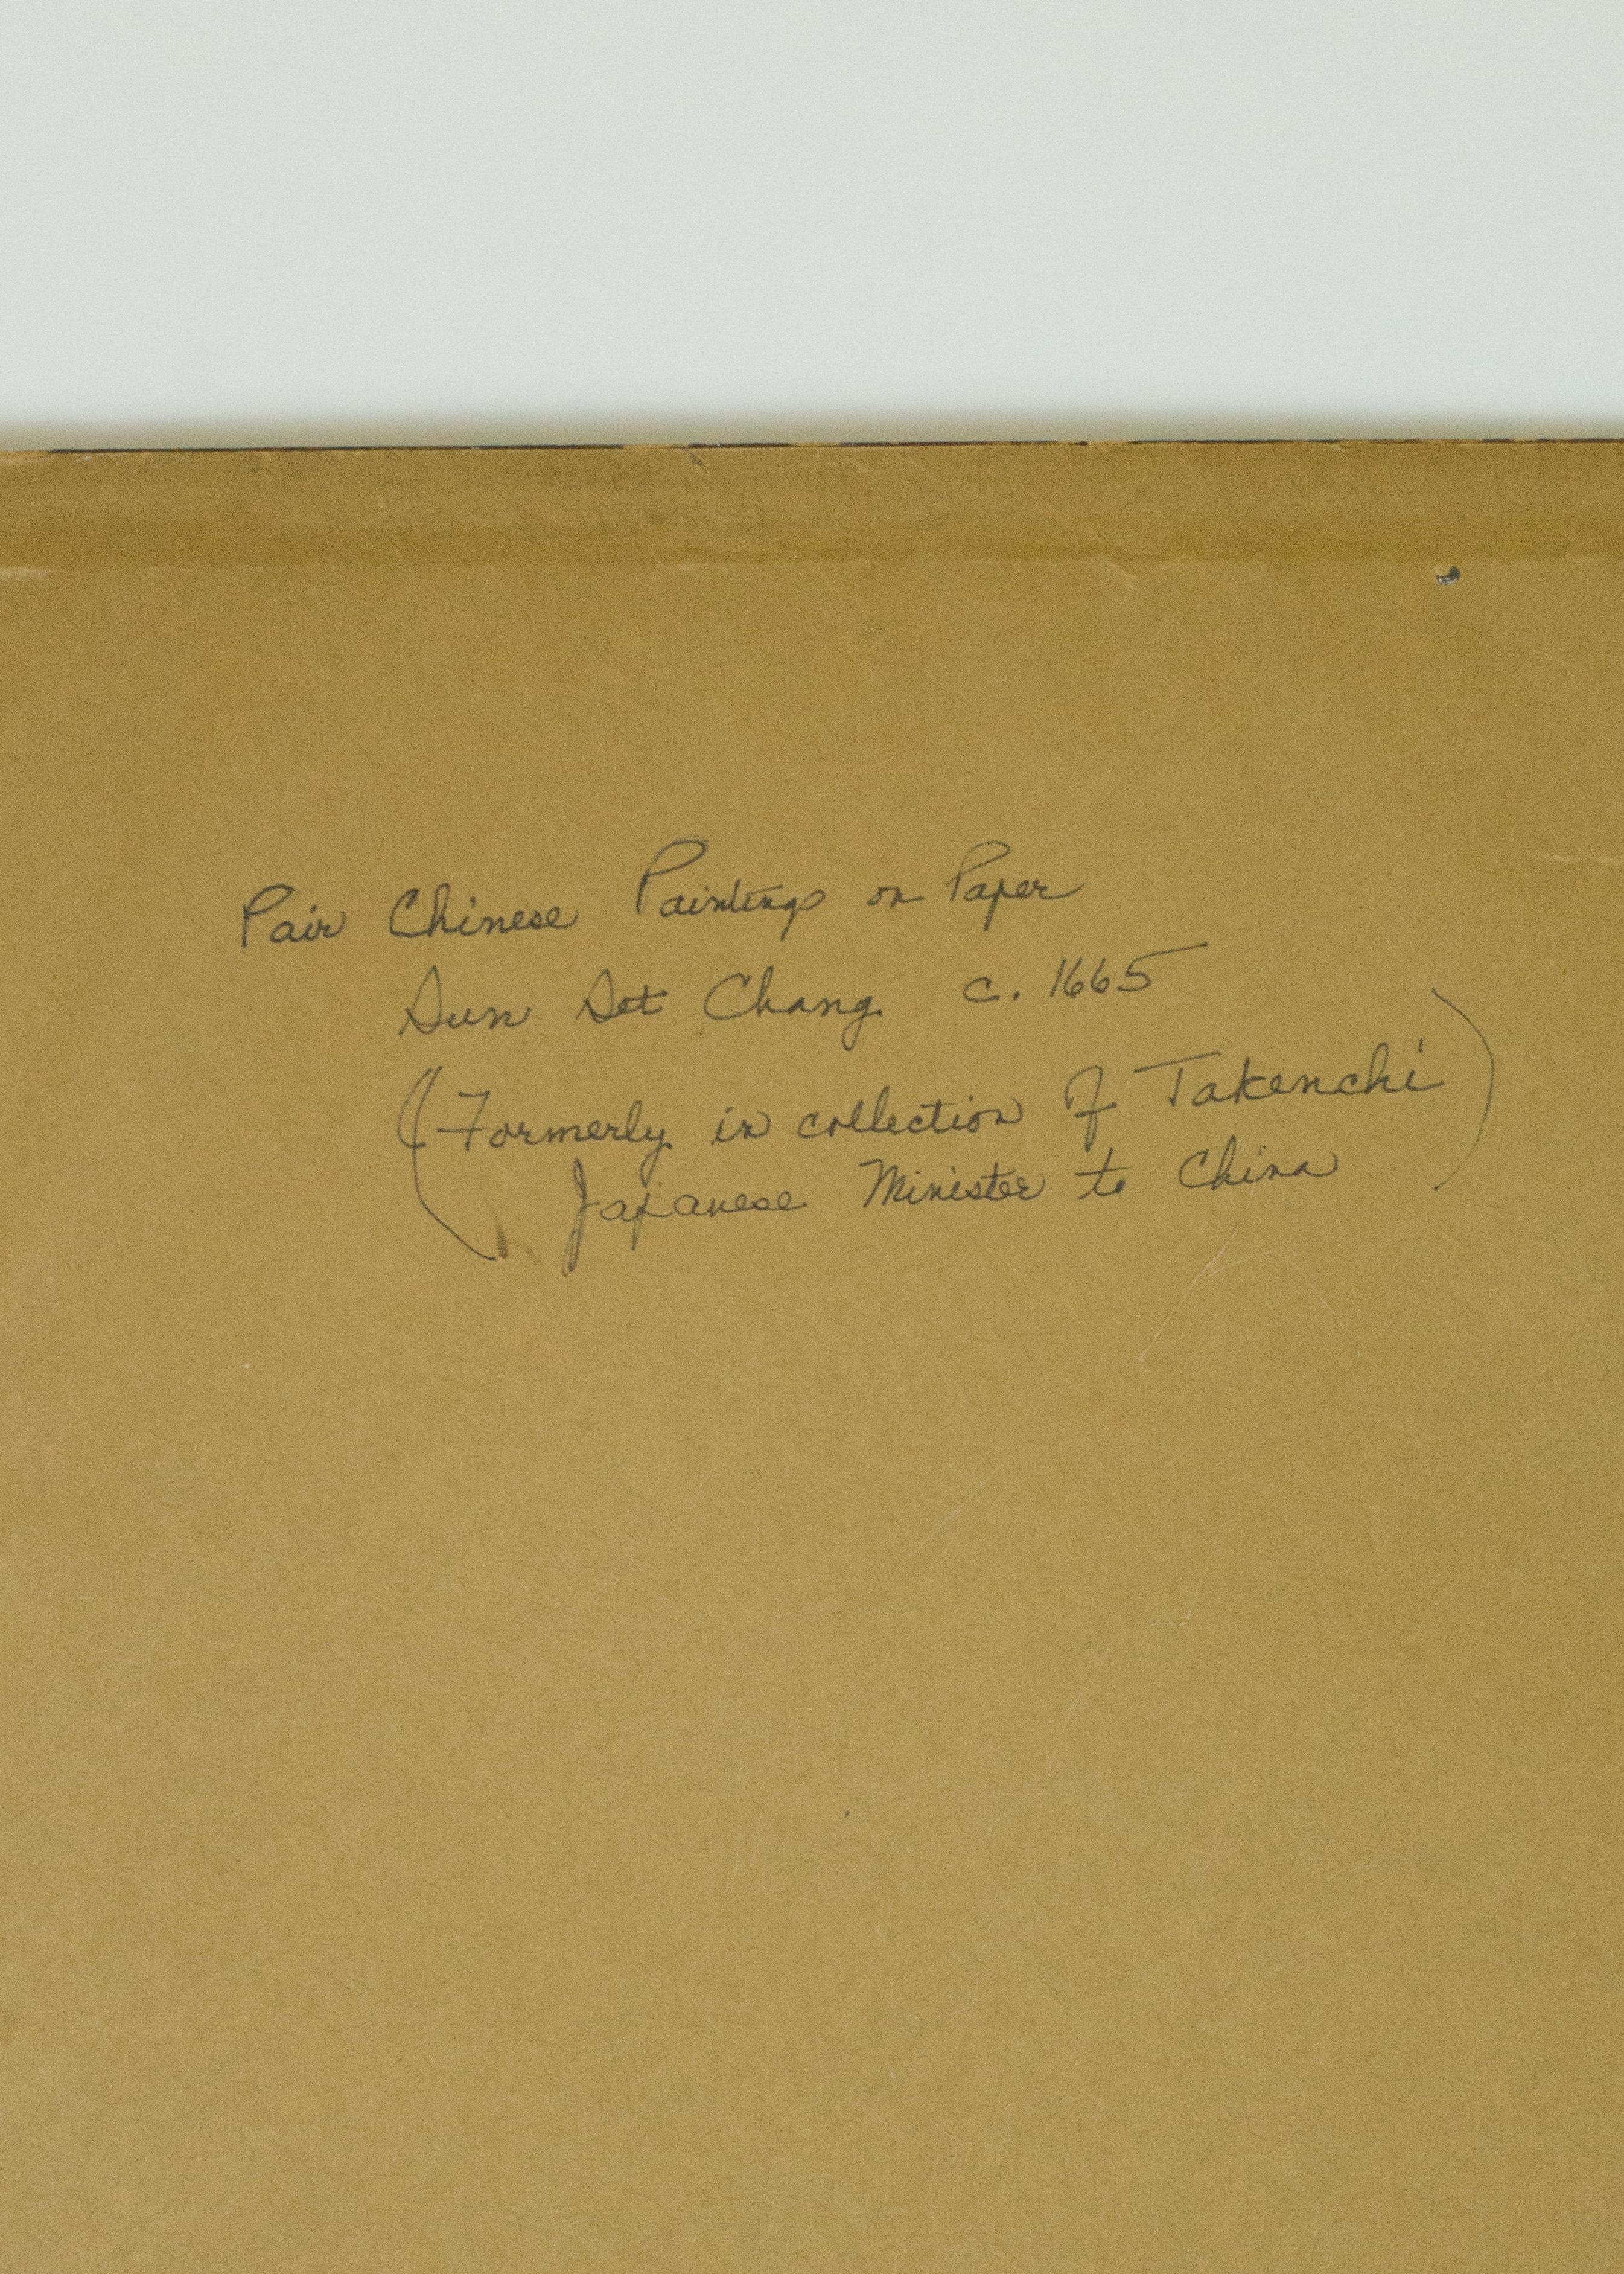 Pair Chinese Paintings on Paper
Sun Set Chang c. 1665
(Formerly in collection of Takenchi
Japanese Minister to China)